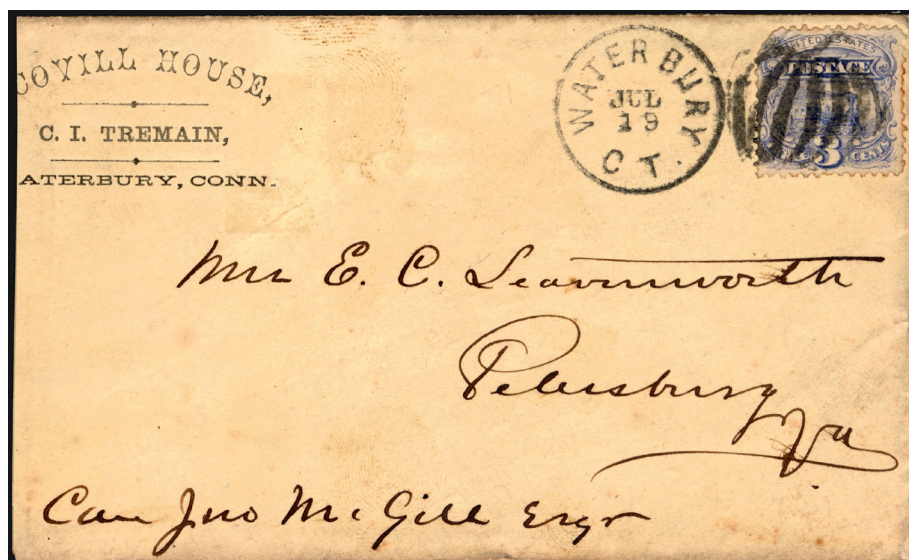 COVILL HOUSE,
C. I. TREMAIN,
ATERBURY, CONN.
WATERBURY
JUL
19
CT.
UNITED STATES
POSTAGE
3
CENTS
Mrs E. C. Leavenworth
Petersburg
Va
Care Jno McGill Esqr